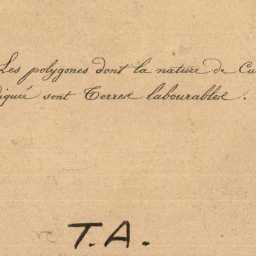 Les polygones dont la nature de Cu
iquée sont Terres labourables.
T.A.